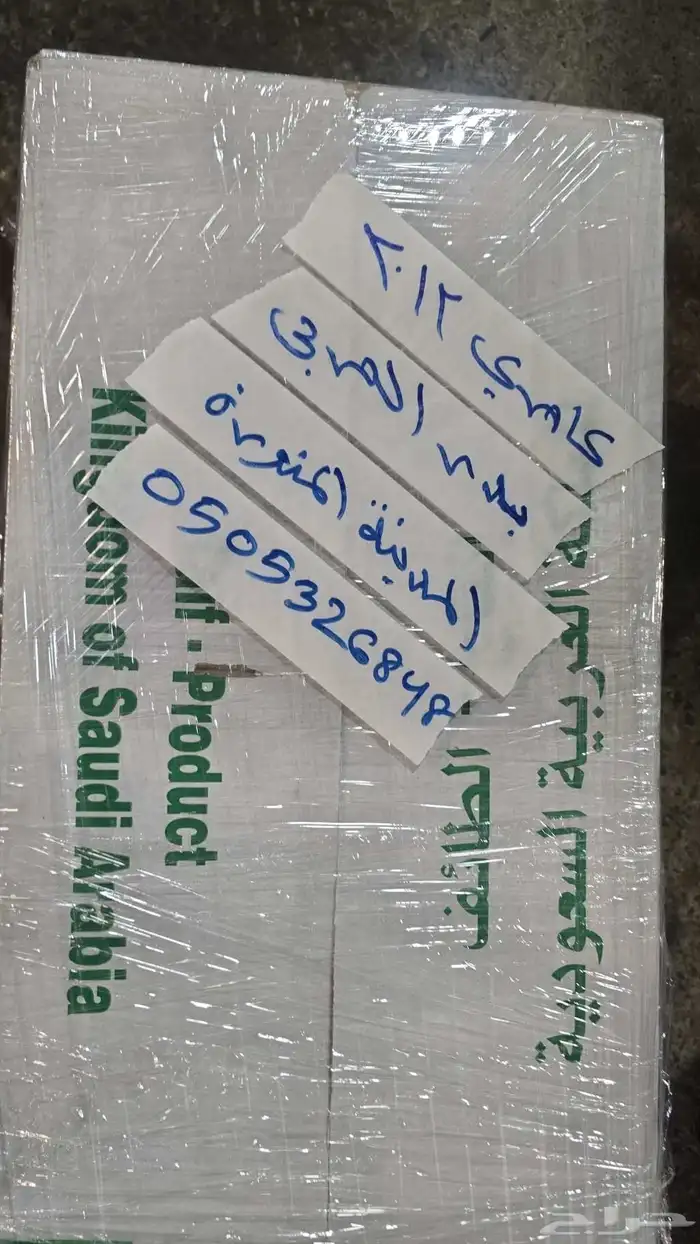 كامري ٢٠١٢
بدر الحربي
المدينة المنورة
0505326848
العربية السعودية
الطائف
Product
Kingdom of Saudi Arabia
حراج